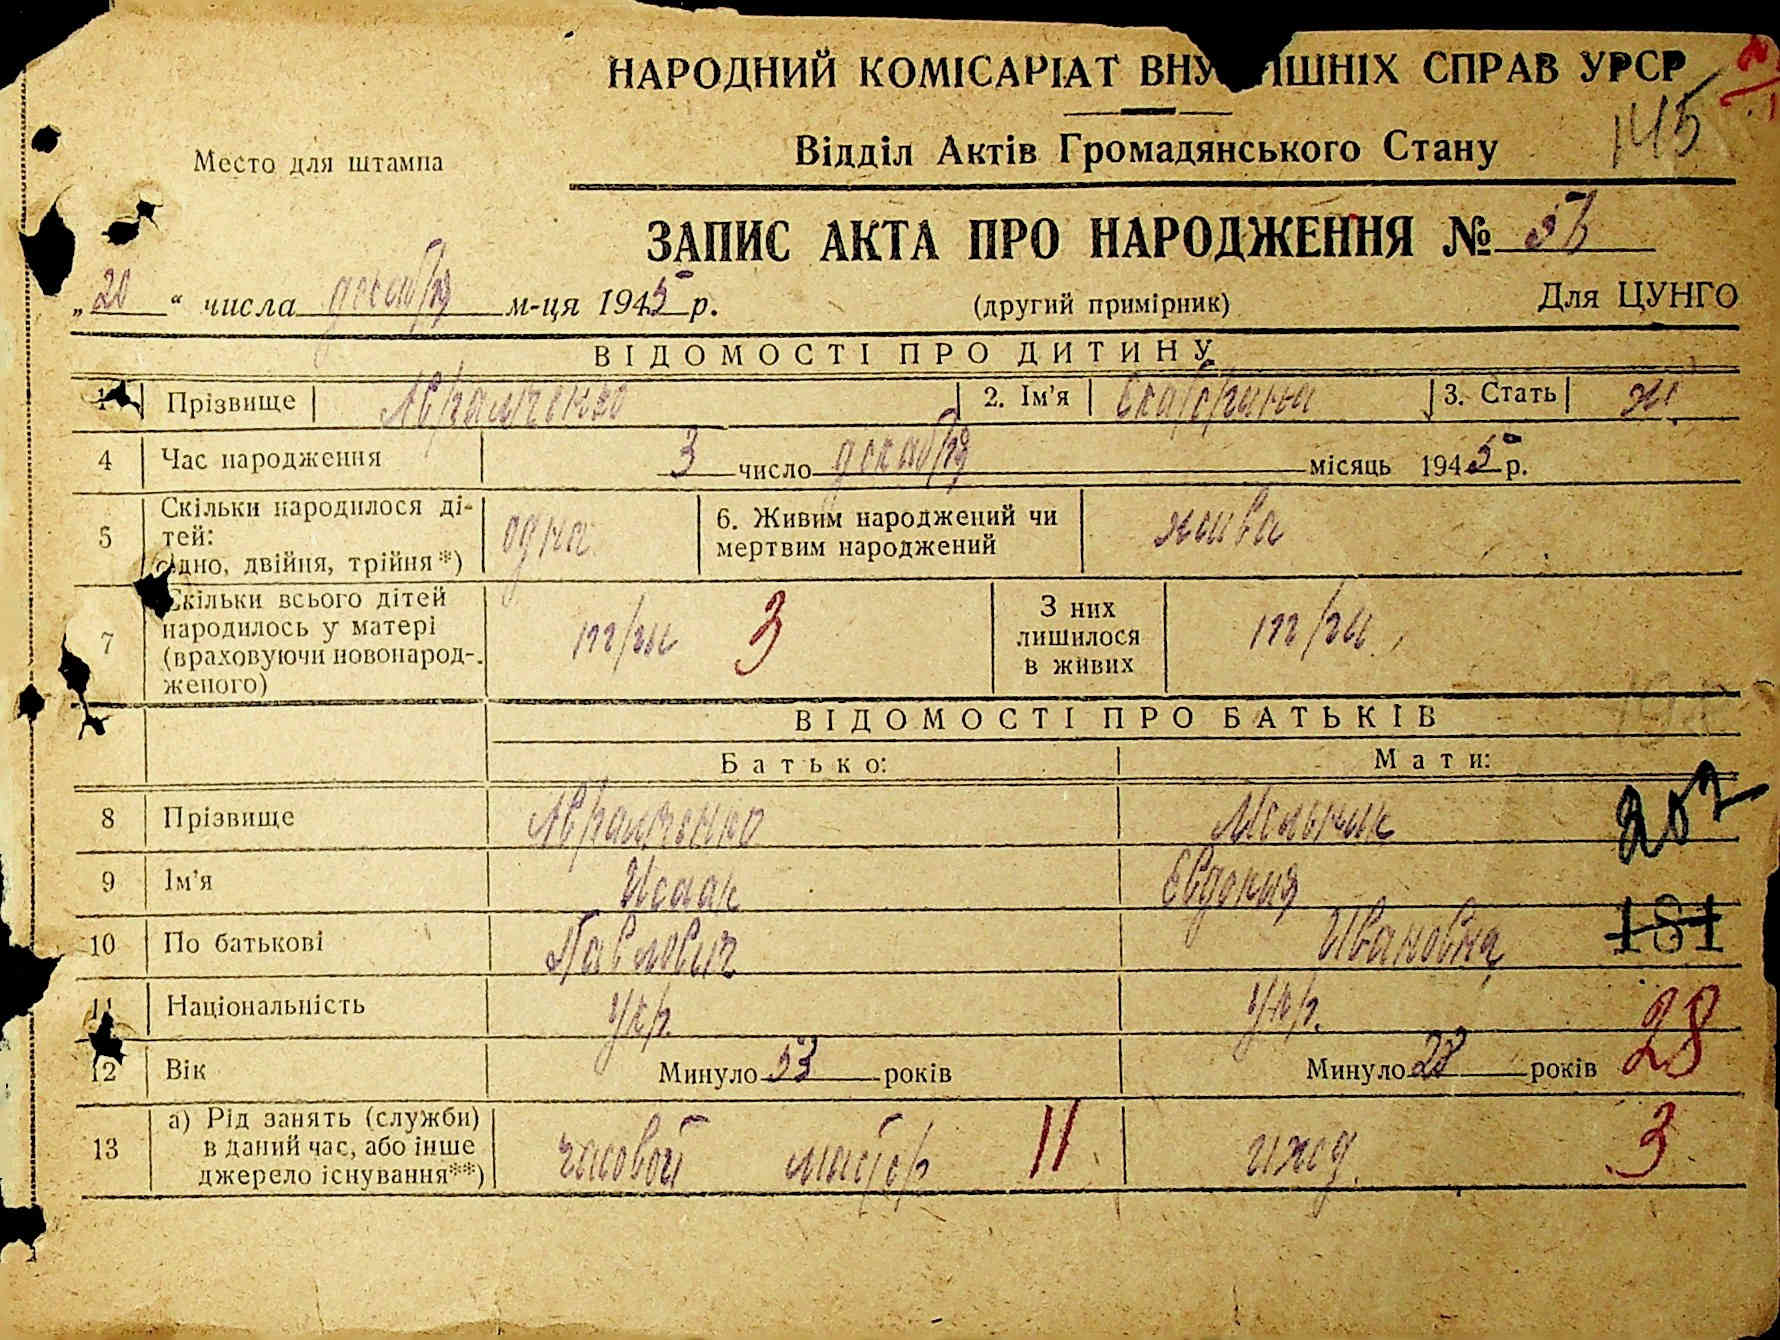 НАРОДНИЙ КОМІСАРІАТ ВНУ ІШНІХ СПРАВ УРСР
145
Место для штампа
Відділ Актів Громадянського Стану
ЗАПИС АКТА ПРО НАРОДЖЕННЯ №
„20“ числа декабря м-ця 1945 р.
(другий примірник)
Для ЦУНГО
ВІДОМОСТІ ПРО ДИТИНУ
1 Прізвище Авраменко 2. Ім'я Екатерина 3. Стать ж.
4 Час народження 3 число декабря місяць 1945 р.
5 Скільки народилося ді-
тей:
одно, двійня, трійня*)
одна
6. Живим народжений чи
мертвим народжений
жива
7 Скільки всього дітей
народилось у матері
(враховуючи новонарод-
женого)
три 3
З них
лишилося
в живих
три
ВІДОМОСТІ ПРО БАТЬКІВ
Батько: Мати:
8 Прізвище Авраменко Мельник
207
9 Ім'я Исаак Евдокия
10 По батькові Павлович Ивановна
181
11 Національність укр. укр.
12 Вік Минуло 53 років Минуло 28 років 28
13 а) Рід занять (служби)
в даний час, або інше
джерело існування**)
часовой мастер 11
ижд. 3